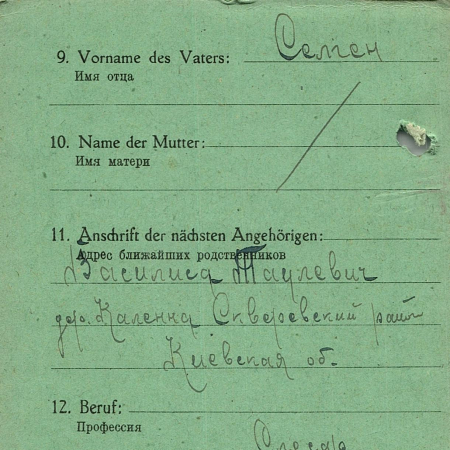 9. Vorname des Vaters: Семен
Имя отца
10. Name der Mutter:
Имя матери
11. Anschrift der nächsten Angehörigen:
Адрес ближайших родственников
Василиса Таулевич
дер. Каленна Скверевский район
Киевская об.
12. Beruf:
Профессия
Слесарь